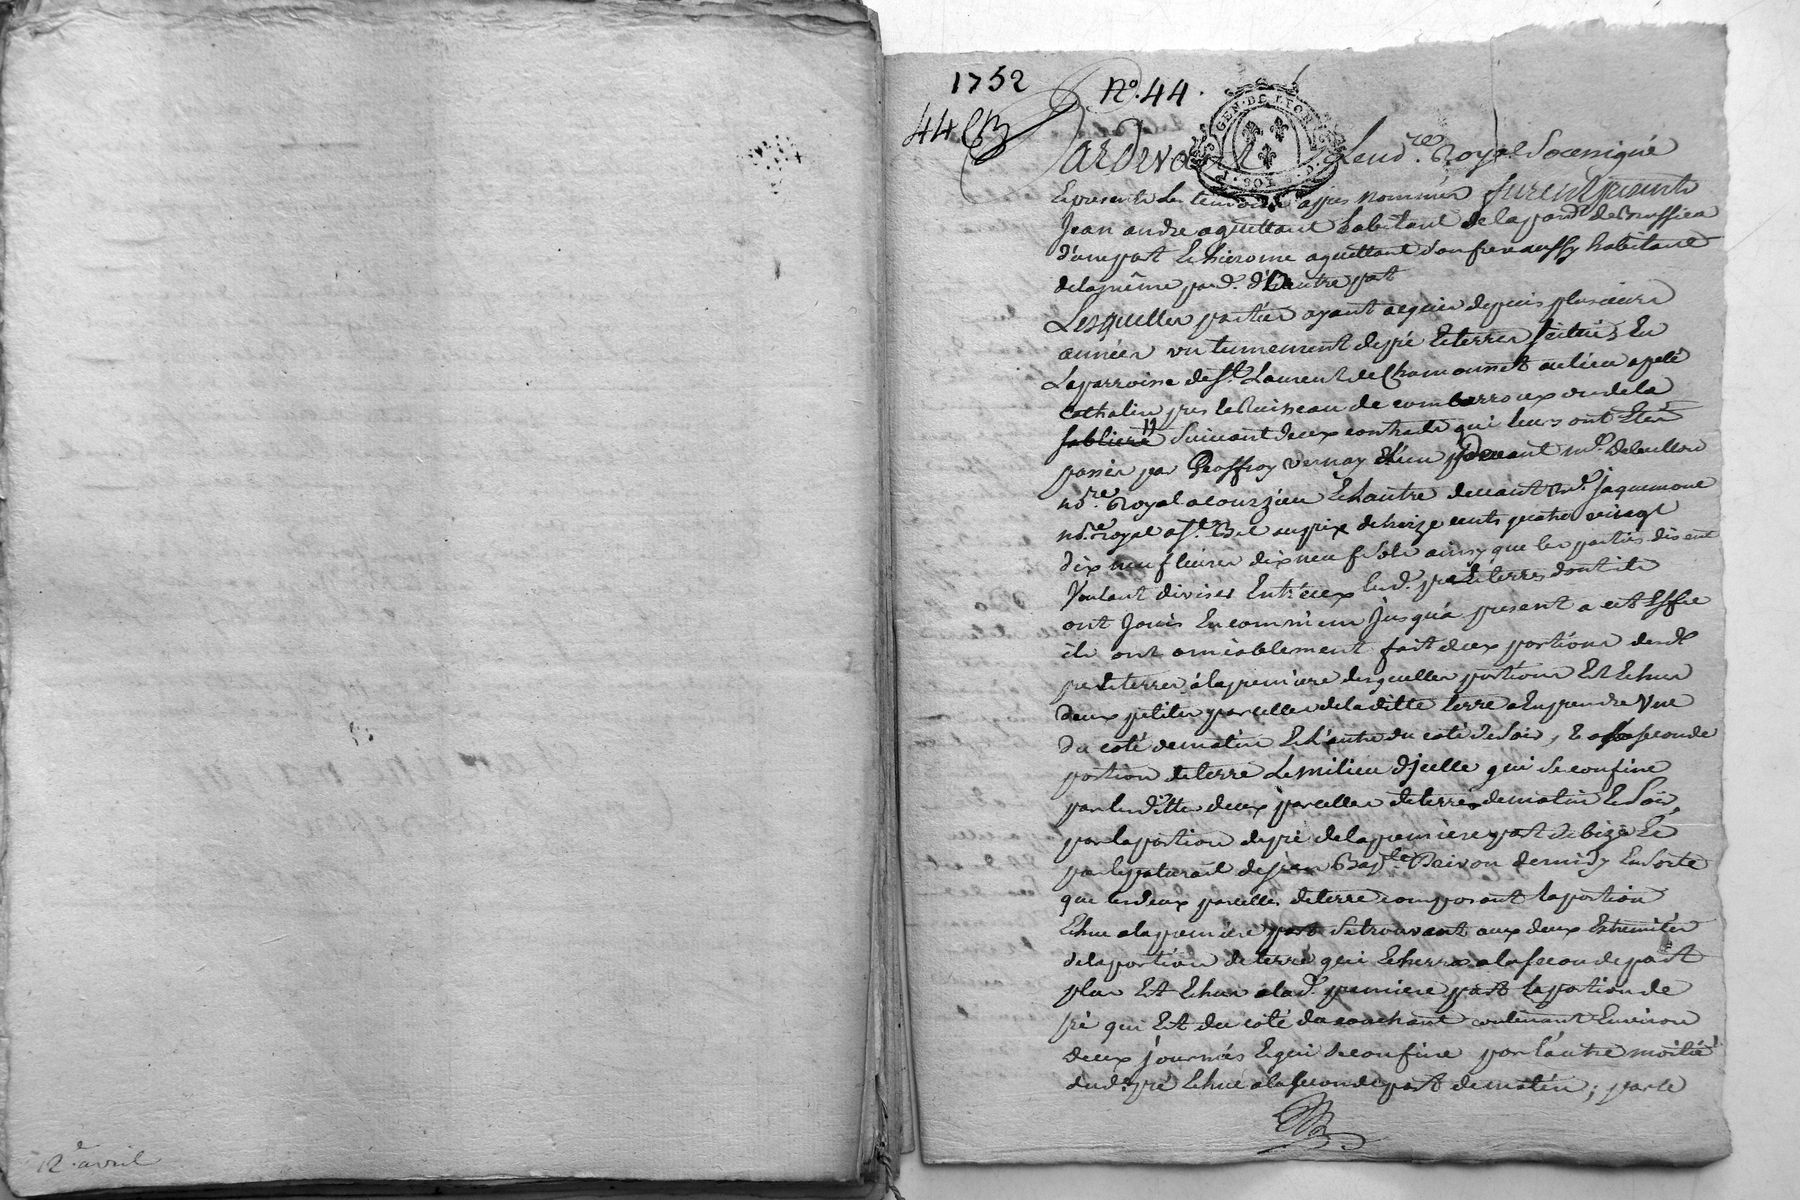 12e avril
1752
No. 44.
44
GEN · DE LYON
Pardevant Le nore Royal Soussigné
Et presents Les temoins apres nommés furent presents
Jean andre aguettant habitant de la parr. de Brussieu
d'une part Et hierome aguettant son frere aussy habitant
de la même par. d'autre part
Lesquelles parties ayant acquis depuis plusieurs
années un tenement de pré Et terres scituées En
La parroisse de St. Laurent de Chamousset au lieu apelé
Cathalin pres le Ruisseau de combarroux ou de la
sabliere Suivant deux contrats qui leurs ont Etés
passés par Geoffroy vernay L'un pardevant Me.
nore. Royal a courzieu Et l'autre devant Me. jaquemone
nore. royal a St. Bel au prix de treize cents quatre vingt
dix neuf livres dix neuf sols ainsy que les parties disent
Voulant diviser Entr'eux lesd. pré Et terres dont ils
ont Jouis En commun Jusqu'a present a cet Effet
ils ont amiablement fait deux portions desd.
pré Et terres, a la premiere desquelles portions Est Echue
deux petites parcelles de la ditte terre a En prendre Une
du coté de matin Et L'autre du coté de Soir, Et a la seconde
portion de terre Le milieu d'jcelle qui se confine
par lesdittes deux parcelles de terres de matin Et Soir,
par la portion de pré de la premiere part de bize Et
par le paturail de jean Bapte. Brivon de midy En sorte
que les deux parcelles de terre composant la portion
Echue a la premiere part se trouvant aux deux Extremités
de la portion de terre qui Echerra a la seconde part
plus Est Echue a lad. premiere part La portion de
pré qui Est du coté du couchant contenant Environ
deux journées Et qui se confine par l'autre moitié
dud. pré Echue a la seconde part de matin; par le